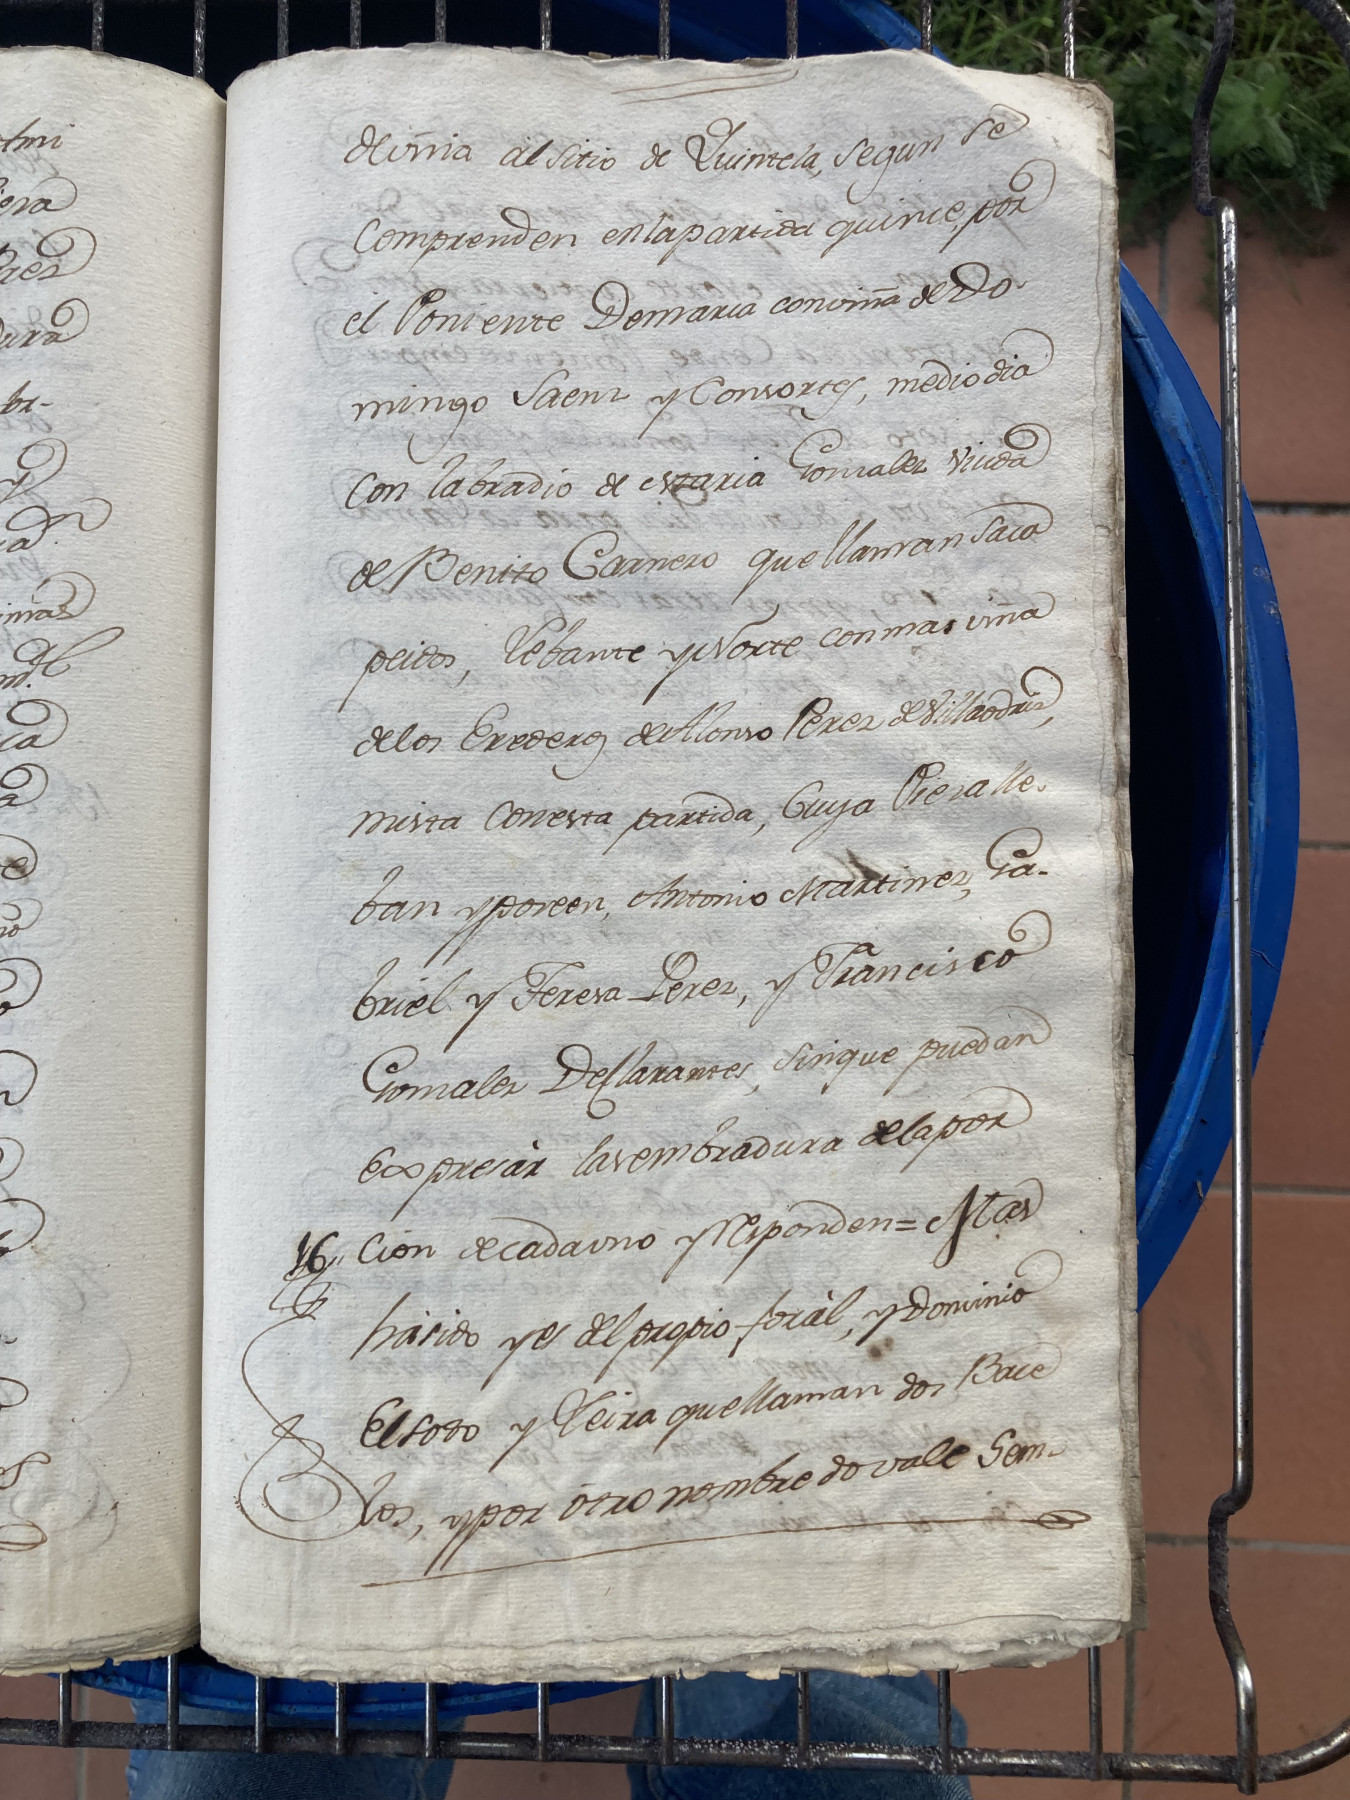 tmi
de viña al sitio de Quintela, segun se
Comprenden en la partida quince, por
el Poniente Demarca con viña de Do-
mingo Saenz y Consortes, medio dia
Con labradio de Maria Gonzalez Viuda
de Benito Carnero que llaman Saca
peidos, Lebante y Norte con mas viña
de los Erederos de Alonso Perez de Villaodriz,
mista con esta partida, Cuya Pieza lle-
ban y poseen, Antonio Martinez, Ga-
briel y Teresa Perez, y Francisco
Gonzalez Declarantes, sin que puedan
Expresar la sembradura de la por
16 Cion de cada uno y responden = Mas
ha sido y es del propio foral, y Dominio
El soto y Leira que llaman dos Bace
los, y por otro nombre do vale Sem-